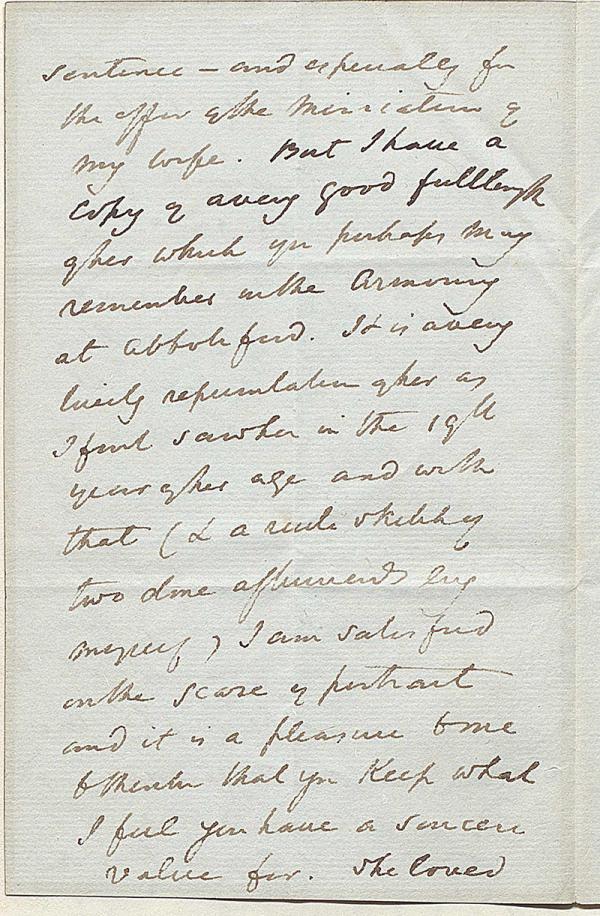 sentence – and especially for
the offer of the Miniature of
my wife. But I have a
Copy of a very good full length
of her which you perhaps may
remember in the Armoury
at Abbotsford. It is a very
lively representation of her as
I first saw her in the 19th
year of her age and with
that (& a rude sketch by
two done afterwards by
myself) I am satisfied
on the score of portrait
and it is a pleasure to me
to think that you Keep what
I feel you have a sincere
value for. She loved